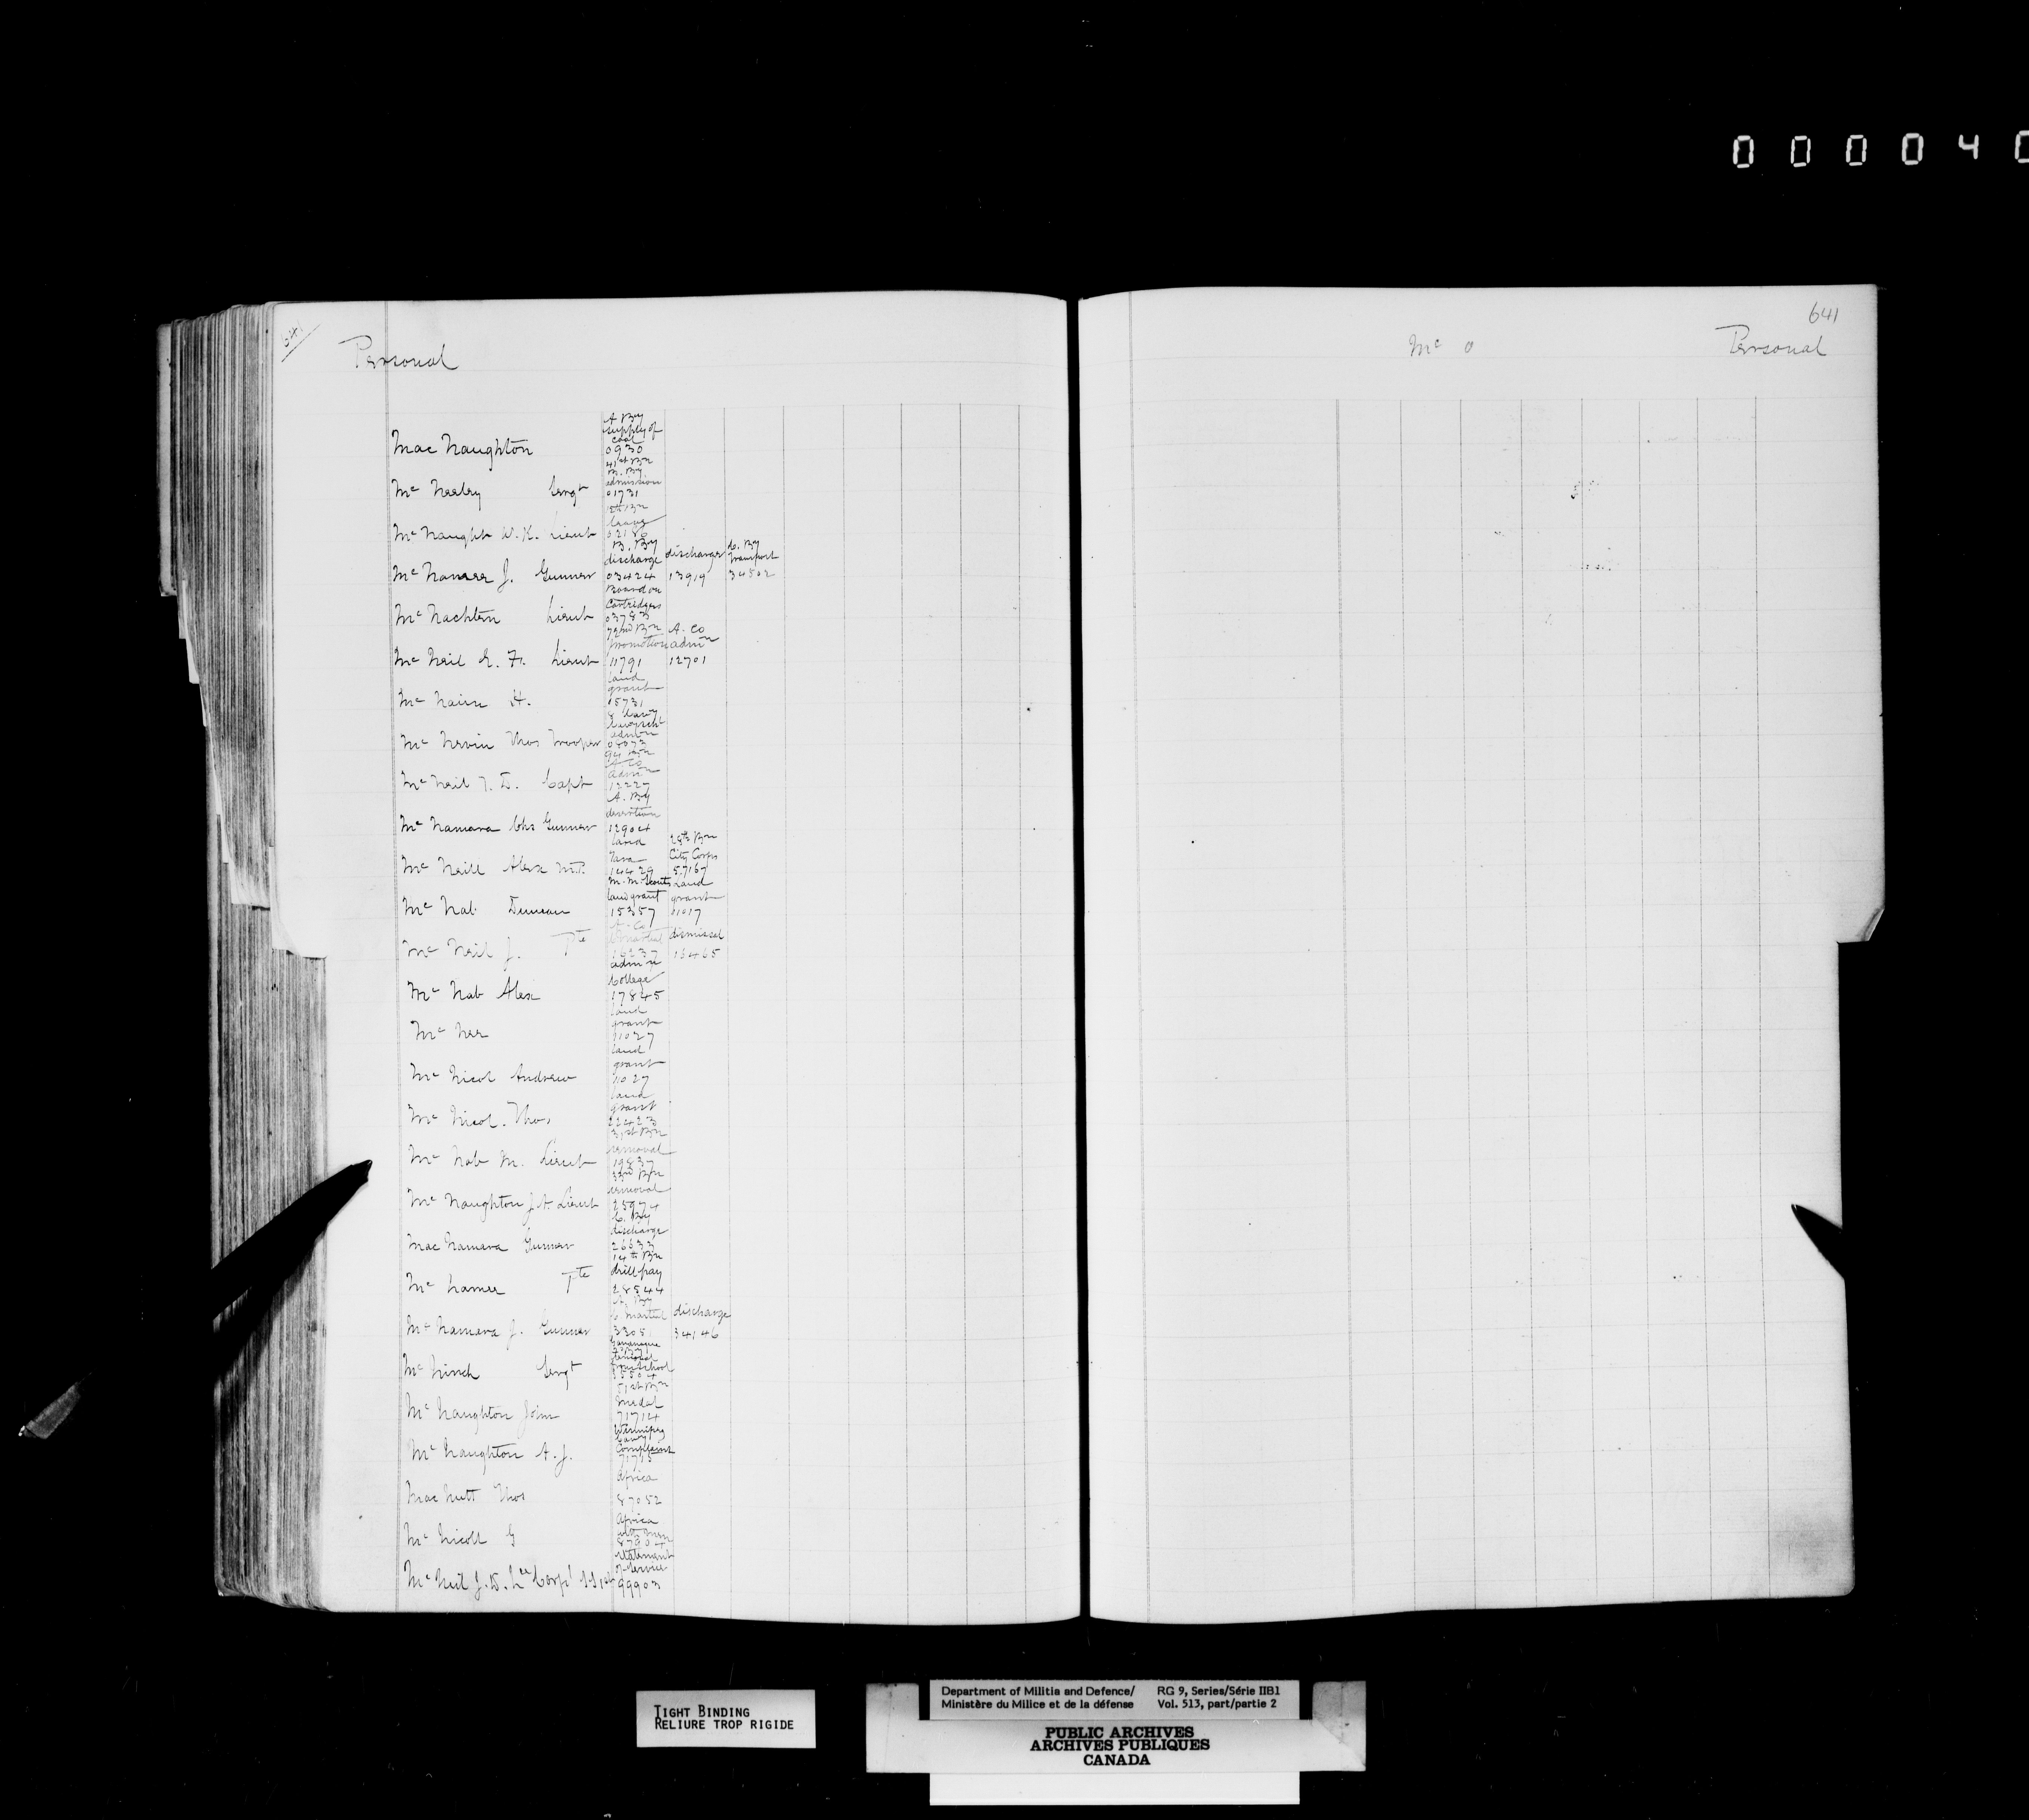 0 0 0 0 4 0
641
Personal
Mac Naughton
A By
supply of
coal
0930
41st Bn
Mc Neeley Sergt
B. By
admission
01731
12th Bn
Mc Naught W. K. Lieut
leave
02180
Mc Namee J. Gunner
B. By
discharge
03424
discharge
13919
C. By
transport
34502
Mc Nachtan Lieut
Board on
Cartridges
03783
Mc Neil E. F. Lieut
72nd Bn
promotion
11791
A. Co
admn
12701
Mc Nairn H.
land
grant
05731
Mc Nevin Thos Trooper
8 Cavy
Mc Neil T. D. Capt
94 Bn
A. Co
admn
12227
Mc Namara Chs Gunner
A. By
desertion
12904
Mc Neill Alex M.P.
land
14429
28th Bn
City Corps
57167
Mc Nab Duncan
M. M. Scouts
land grant
15357
Land
grant
Mc Neil J. Pte
A. Co
16237
dismissal
16465
Mc Nab Alex
admn
College
17845
Mc Nee
land
grant
11027
Mc Nicol Andrew
land
grant
11027
Mc Nicol. Thos
land
grant
22423
Mc Nab M. Lieut
31st Bn
removal
19837
Mc Naughton J. A. Lieut
33rd Bn
removal
25974
Mac Namara Gunner
C. By
discharge
26633
Mc Namee Pte
14th Bn
drill pay
28544
Mc Namara J. Gunner
A. By
C Martial
3305
discharge
34146
Mc Ninch Sergt
Gananoque
F By
removal
from School
35504
Mc Naughton John
51st Bn
medal
71714
Mc Naughton A. J.
Winnipeg
Cavy
Complaint
71715
Mac Nutt Thos
Africa
87052
Mc Nicoll G
Africa
87304
Mc Neil J. D. Lce Corpl
statement
of Service
99903
641
Mc O
Personal
TIGHT BINDING
RELIURE TROP RIGIDE
Department of Militia and Defence/
Ministère du Milice et de la défense
RG 9, Series/Série IIB1
Vol. 513, part/partie 2
PUBLIC ARCHIVES
ARCHIVES PUBLIQUES
CANADA